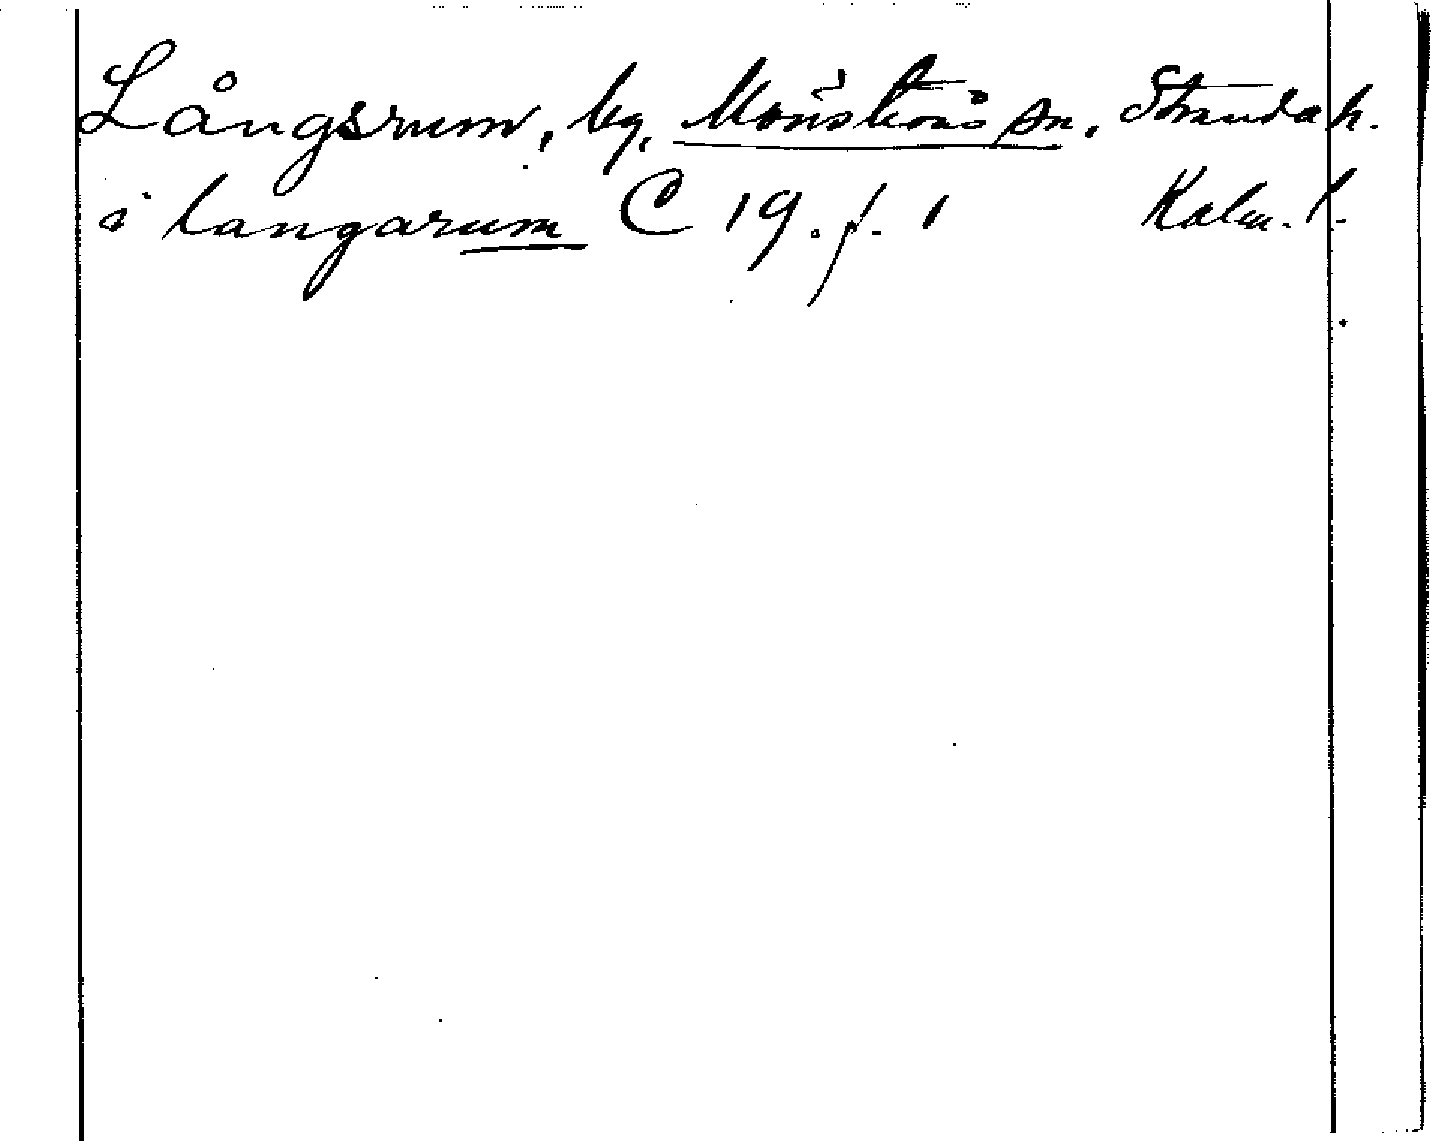 Långsrum, by, Mönsterås sn. Stranda h.
i langarum C 19. f. 1 Kalm. l.